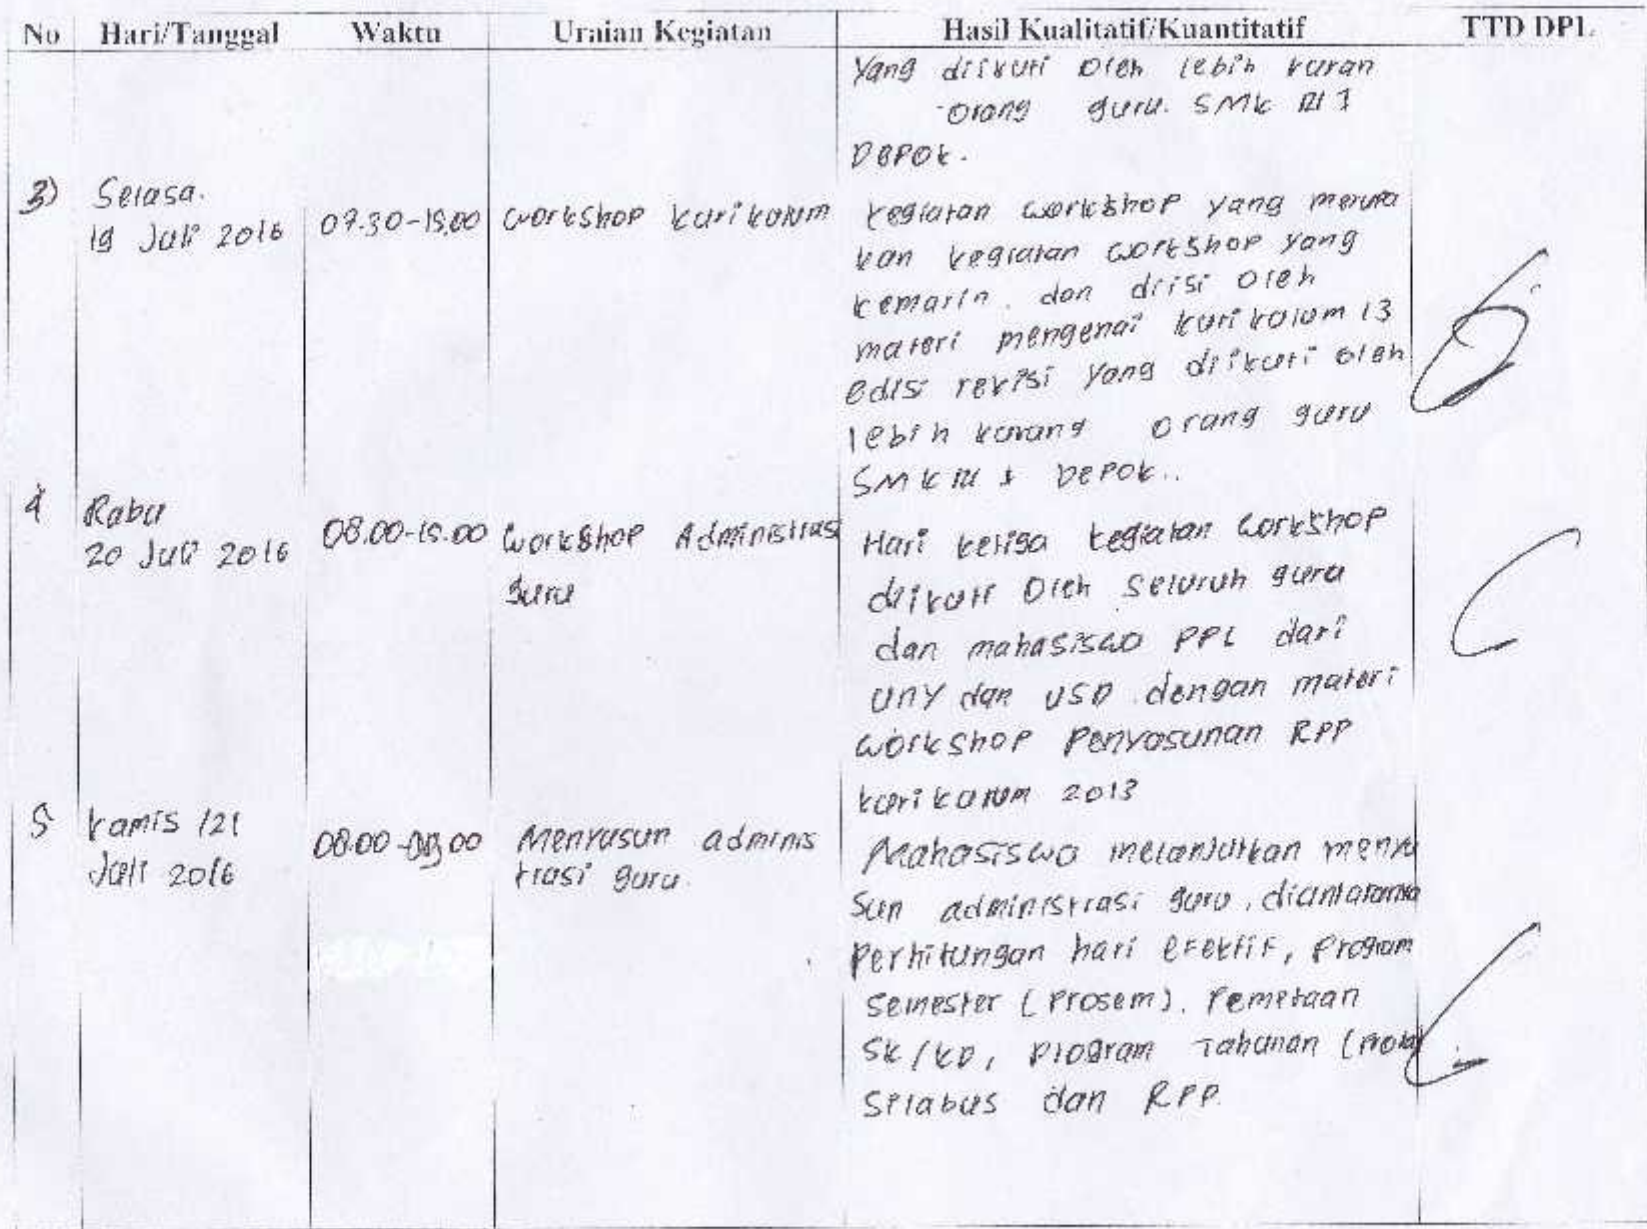 No Hari/Tanggal Waktu Uraian Kegiatan Hasil Kualitatif/Kuantitatif TTD DPL
yang diikuti oleh lebih kuran
orang guru. SMK N 1
Depok.
3) Selasa.
19 Juli 2016
07.30-15.00
Workshop kurikulum
kegiatan workshop yang merupa
kan kegiatan workshop yang
kemarin. dan diisi oleh
materi mengenai kurikulum 13
edisi revisi yang diikuti oleh
lebih kurang orang guru
SMK N 1 Depok..
4 Rabu
20 Juli 2016
08.00-15.00
Workshop Administras
guru
Hari ketiga kegiatan workshop
diikuti oleh seluruh guru
dan mahasiswa PPL dari
UNY dan USD. dengan materi
workshop penyusunan RPP
kurikulum 2013
5 Kamis /21
Juli 2016
08.00-
Menyusun adminis
trasi guru.
Mahasiswa melanjutkan menyu
sun administrasi guru, diantaranya
perhitungan hari efektif, program
semester (prosem). Pemetaan
SK/KD, program Tahunan (
Silabus dan RPP.